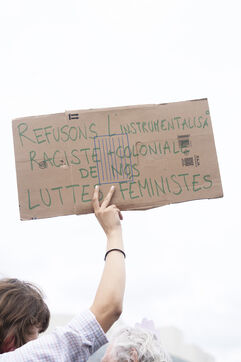 REFUSONS L'INSTRUMENTALISA°
RACISTE + COLONIALE
DE NOS
LUTTES FÉMINISTES